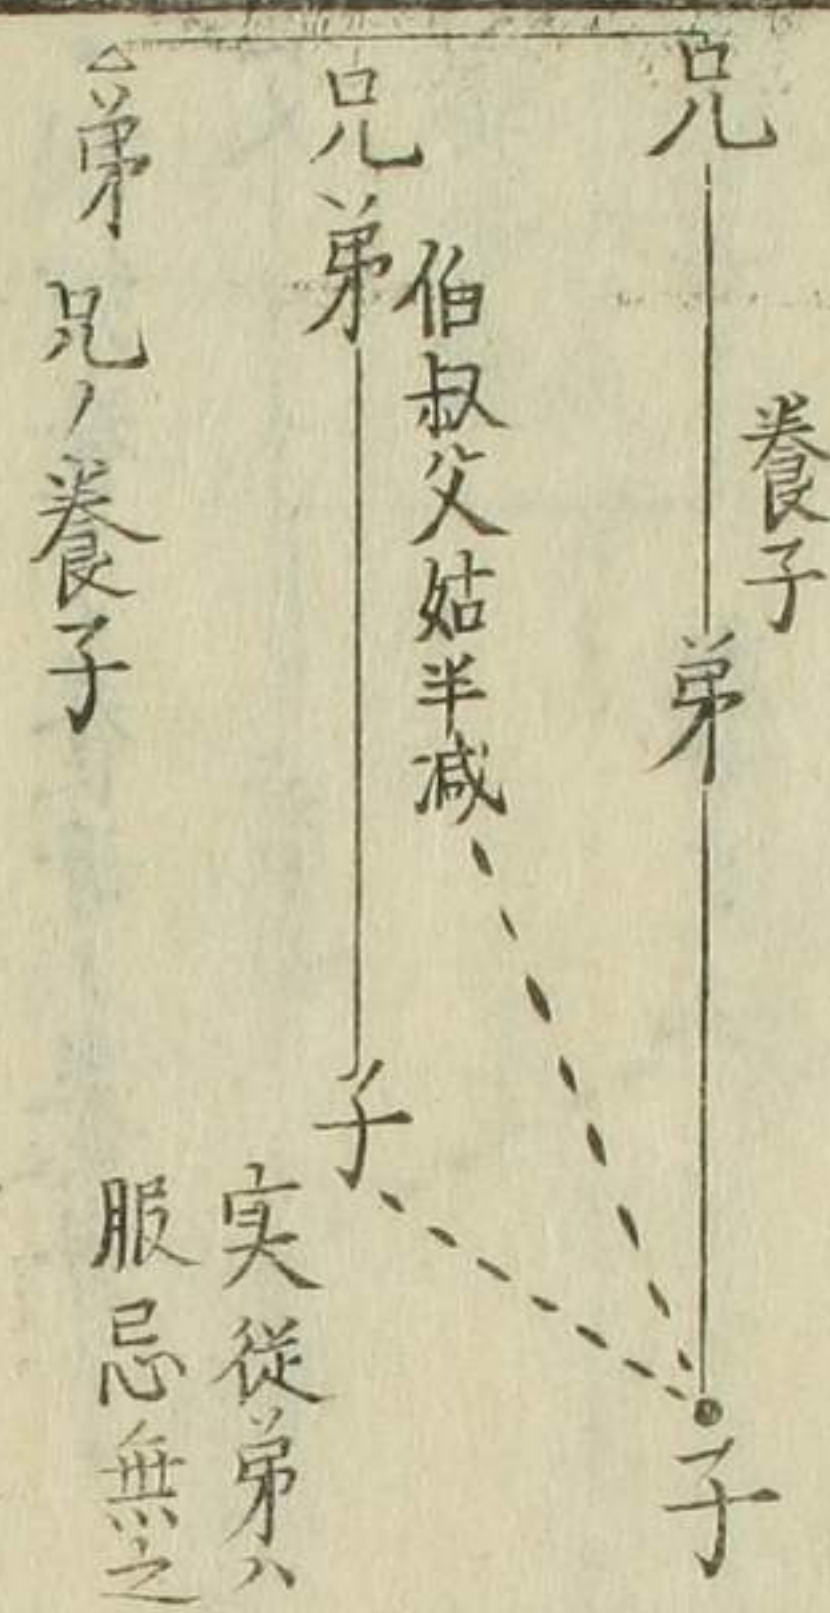 兄
養子
弟
子
伯叔父姑半減
兄弟
子
実従弟ハ
服忌無之
△弟 兄ノ養子